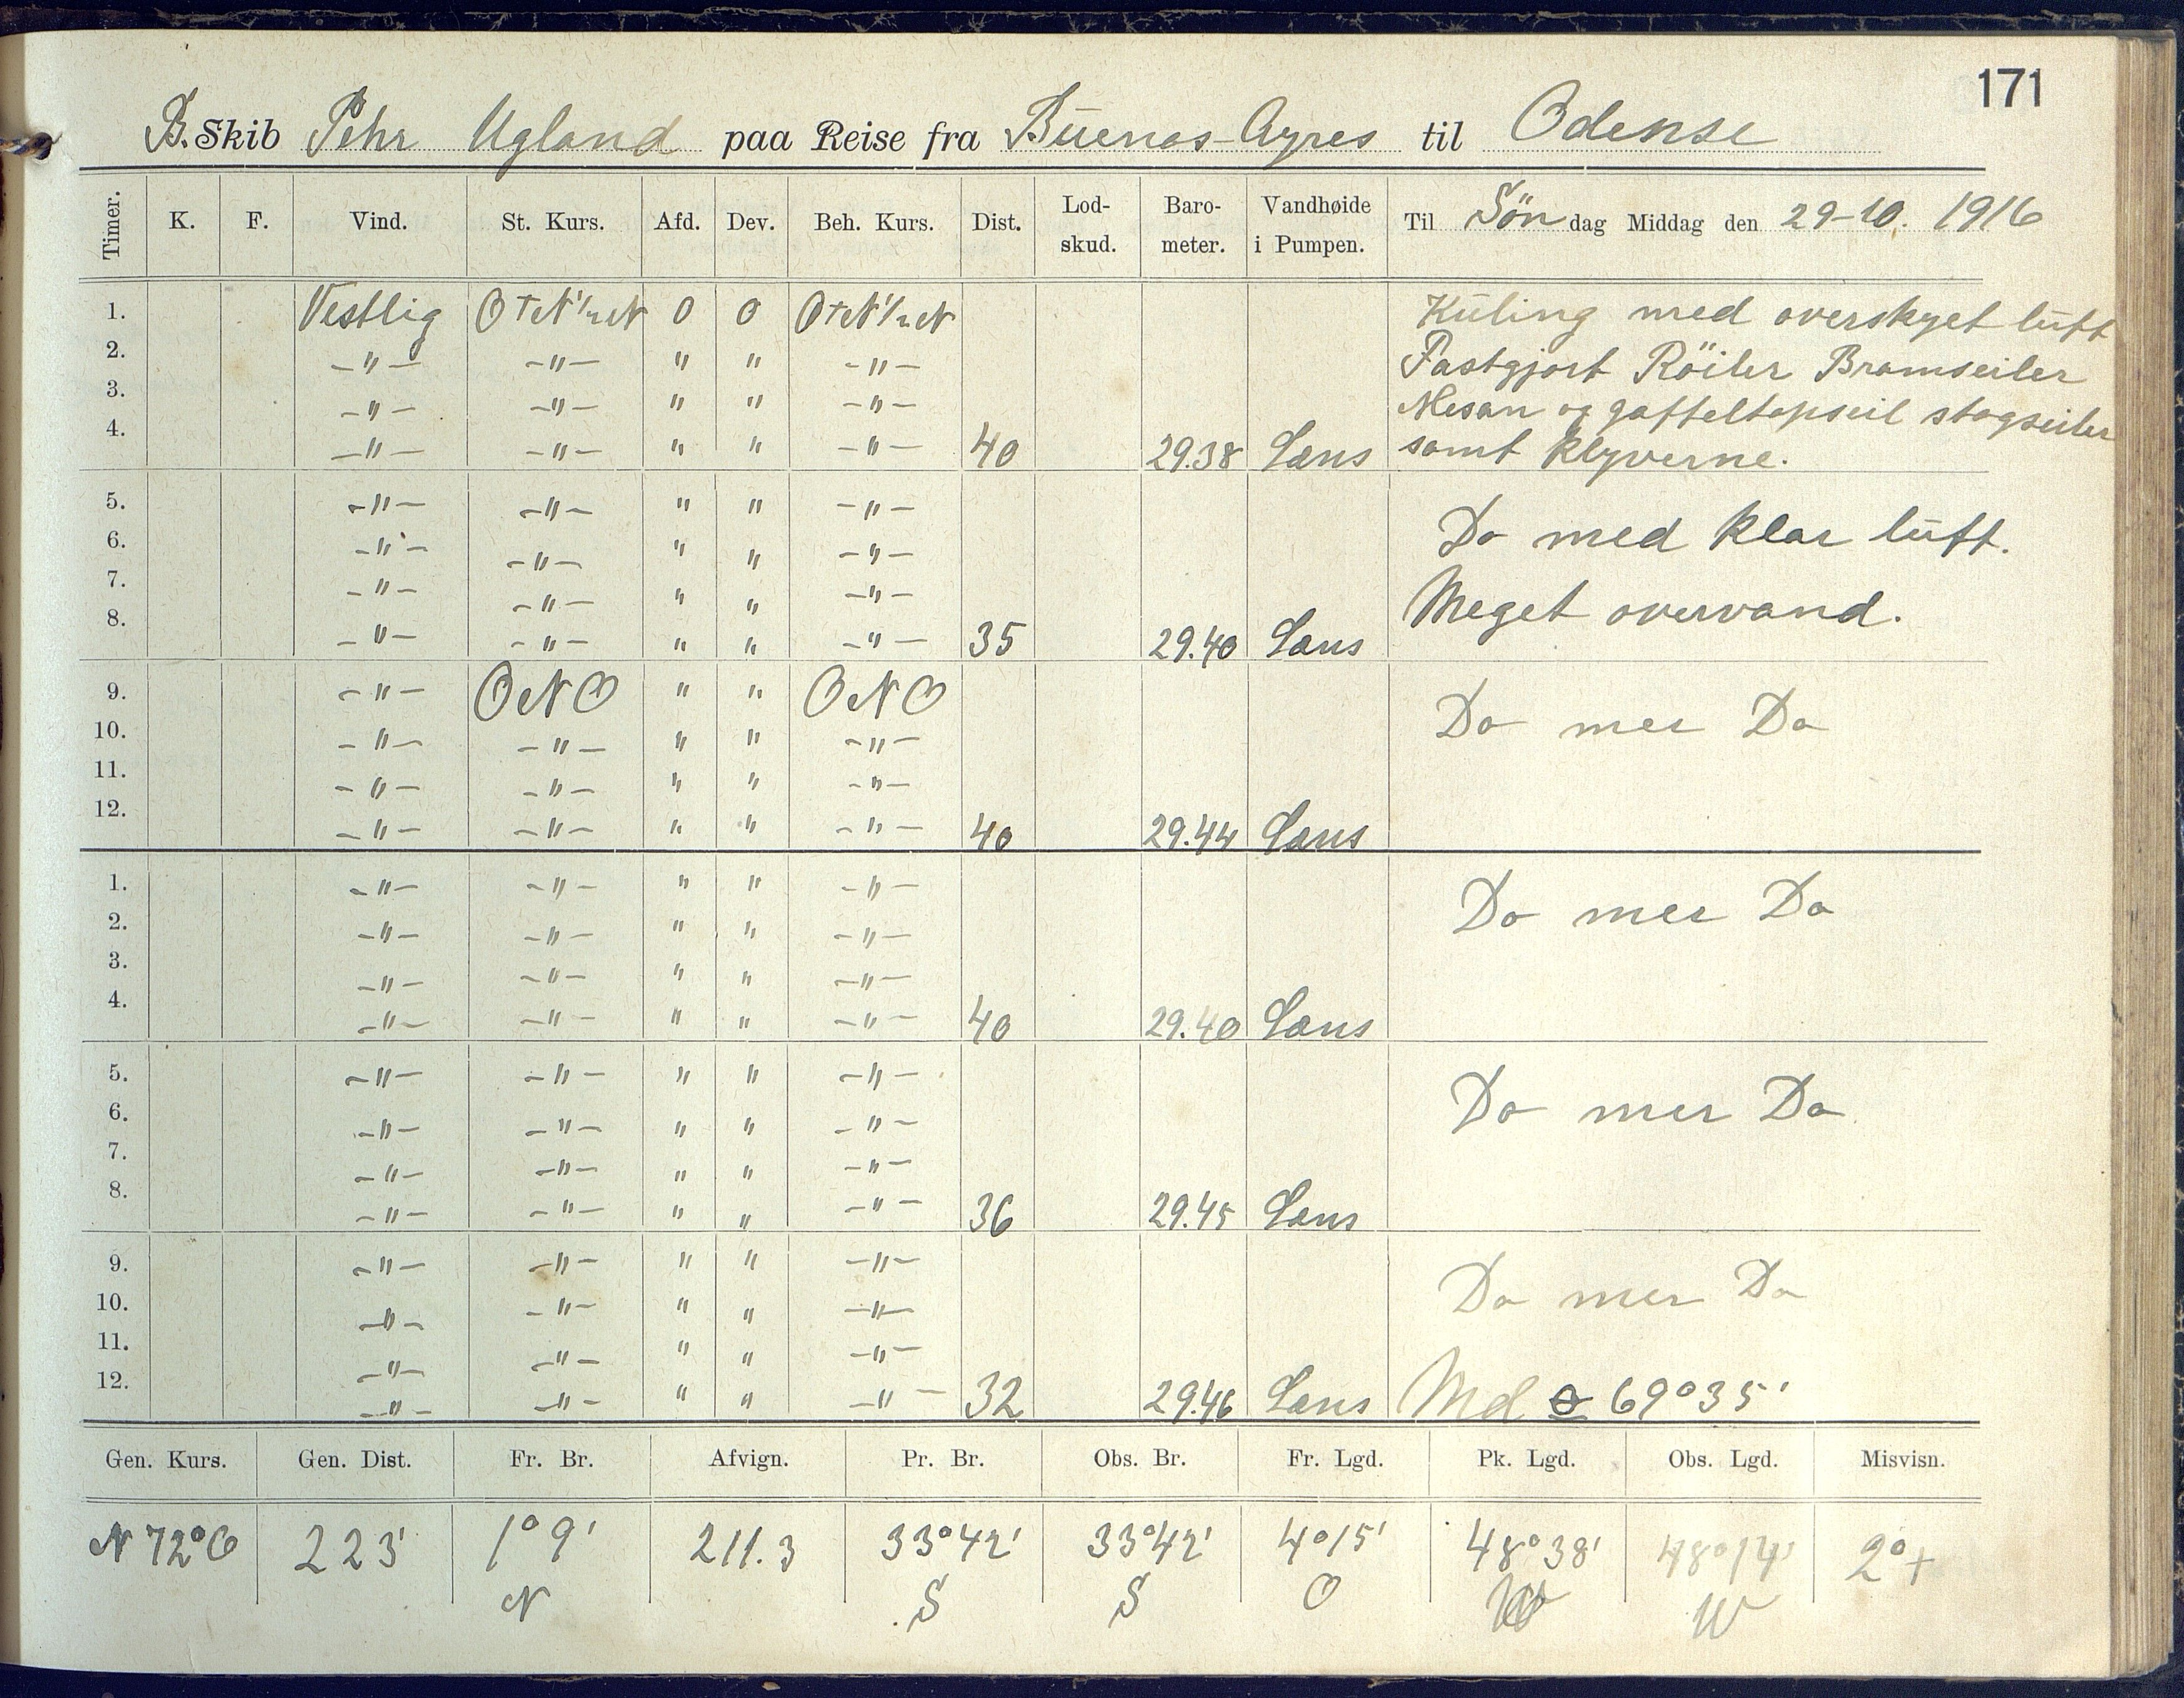 171
B. Skib Pehr Ugland paa Reise fra Buenos-Ayres til Odense
Timer. K. F. Vind. St. Kurs. Afd. Dev. Beh. Kurs. Dist. Lod-skud. Baro-meter. Vandhøide i Pumpen. Til Søndag Middag den 29-10. 1916
1. Vestlig OtN½N 0 0 OtN½N Küling med overskyet lüft
2. -"- -"- " " -"- Fastgjort Röiler Bramseiler
3. -"- -"- " " -"- Mesan og gaffeltopseil stagseiler
4. -"- -"- " " -"- 40 29.38 Læns samt klyverne.
5. -"- -"- " " -"-
6. -"- -"- " " -"- Do med klar lüft.
7. -"- -"- " " -"- Meget overvand.
8. -"- -"- " " -"- 35 29.40 Læns
9. -"- ONO " " ONO Do mer Do
10. -"- -"- " " -"-
11. -"- -"- " " -"-
12. -"- -"- " " -"- 40 29.44 Læns
1. -"- -"- " " -"- Do mer Do
2. -"- -"- " " -"-
3. -"- -"- " " -"-
4. -"- -"- " " -"- 40 29.40 Læns
5. -"- -"- " " -"- Do mer Do
6. -"- -"- " " -"-
7. -"- -"- " " -"-
8. -"- -"- " " -"- 36 29.45 Læns
9. -"- -"- " " -"- Do mer Do
10. -"- -"- " " -"-
11. -"- -"- " " -"-
12. -"- -"- " " -"- 32 29.46 Læns Md ⊙ 69°35'
Gen. Kurs. Gen. Dist. Fr. Br. Afvign. Pr. Br. Obs. Br. Fr. Lgd. Pk. Lgd. Obs. Lgd. Misvisn.
N 72° O 223' 1° 9' 211.3 33°42' 33°42' 4°15' 48°38' 48°14' 2°+
N S S O W W